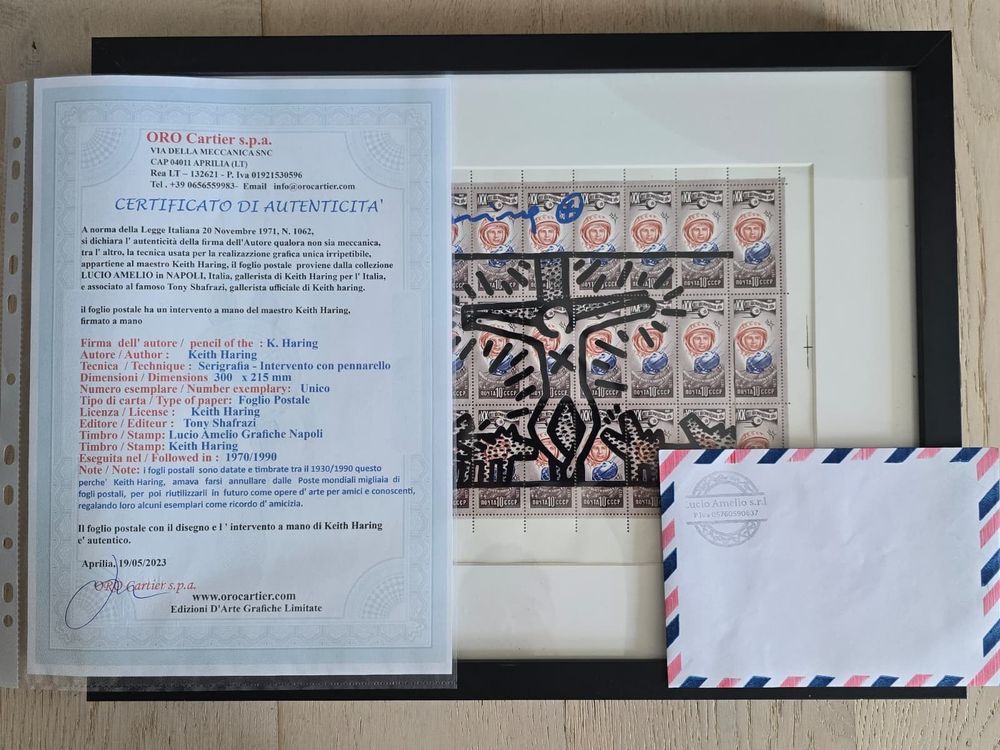 ORO Cartier s.p.a.
VIA DELLA MECCANICA SNC
CAP 04011 APRILIA (LT)
Rea LT – 132621 - P. Iva 01921530596
Tel . +39 0656559983- Email info@orocartier.com
CERTIFICATO DI AUTENTICITA'
A norma della Legge Italiana 20 Novembre 1971, N. 1062,
si dichiara l' autenticità della firma dell'Autore qualora non sia meccanica,
tra l' altro, la tecnica usata per la realizazzione grafica unica irripetibile,
appartiene al maestro Keith Haring, il foglio postale proviene dalla collezione
LUCIO AMELIO in NAPOLI, Italia, gallerista di Keith Haring per l' Italia,
e associato al famoso Tony Shafrazi, gallerista ufficiale di Keith haring.
il foglio postale ha un intervento a mano del maestro Keith Haring,
firmato a mano
Firma dell' autore / pencil of the : K. Haring
Autore / Author : Keith Haring
Tecnica / Technique : Serigrafia - Intervento con pennarello
Dimensioni / Dimensions 300 x 215 mm
Numero esemplare / Number exemplary: Unico
Tipo di carta / Type of paper: Foglio Postale
Licenza / License : Keith Haring
Editore / Editeur : Tony Shafrazi
Timbro / Stamp: Lucio Amelio Grafiche Napoli
Timbro / Stamp: Keith Haring
Eseguita nel / Followed in : 1970/1990
Note / Note: i fogli postali sono datate e timbrate tra il 1930/1990 questo
perche' Keith Haring, amava farsi annullare dalle Poste mondiali migliaia di
fogli postali, per poi riutilizzarli in futuro come opere d' arte per amici e conoscenti,
regalando loro alcuni esemplari come ricordo d' amicizia.
Il foglio postale con il disegno e l ' intervento a mano di Keith Haring
e' autentico.
Aprilia, 19/05/2023
ORO Cartier s.p.a.
www.orocartier.com
Edizioni D'Arte Grafiche Limitate
ПОЧТА 10 СССР
Lucio Amelio s.r.l
P.Iva 05760590637